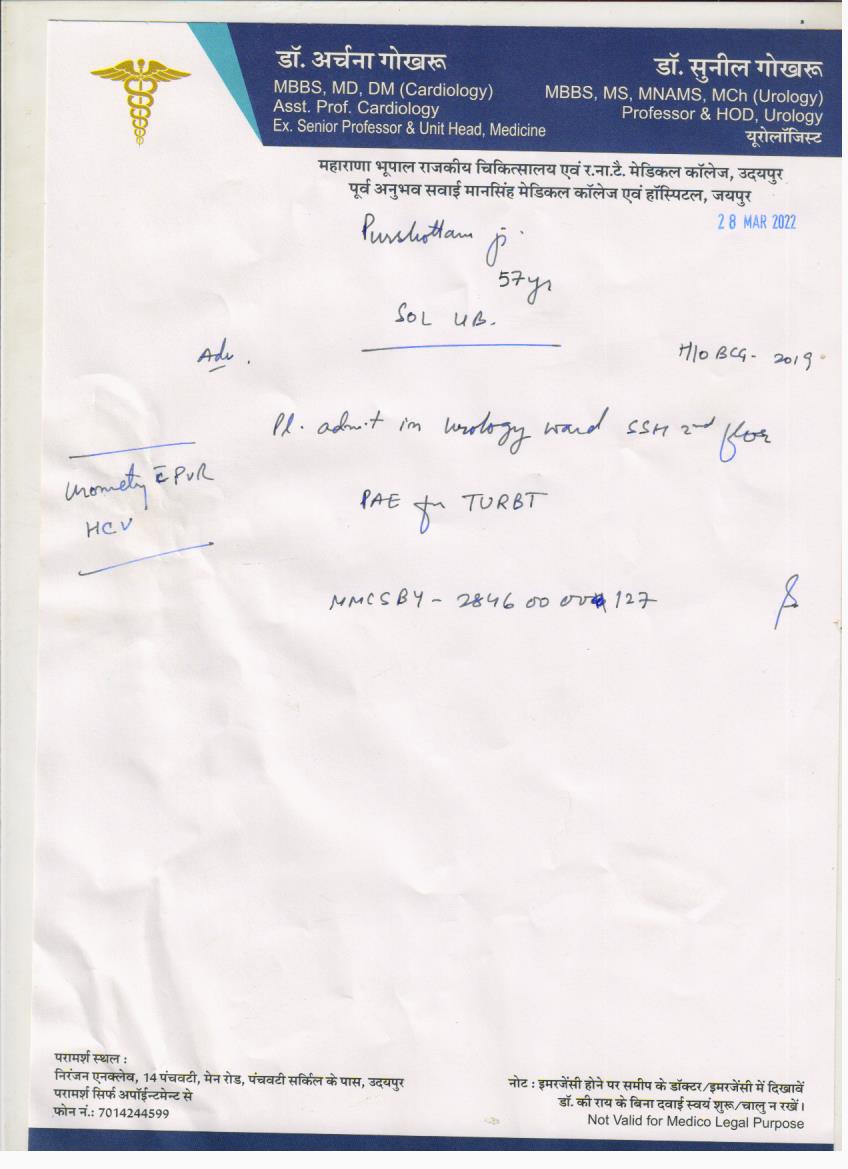 डॉ. अर्चना गोखरू
MBBS, MD, DM (Cardiology)
Asst. Prof. Cardiology
Ex. Senior Professor & Unit Head, Medicine
डॉ. सुनील गोखरू
MBBS, MS, MNAMS, MCh (Urology)
Professor & HOD, Urology
यूरोलॉजिस्ट
महाराणा भूपाल राजकीय चिकित्सालय एवं र.ना.टै. मेडिकल कॉलेज, उदयपुर
पूर्व अनुभव सवाई मानसिंह मेडिकल कॉलेज एवं हॉस्पिटल, जयपुर
28 MAR 2022
Purshottam ji
57yr
SOL UB.
Adv.
H/O BCG- 2019
Pl. admit in Urology ward SSH 2nd floor
Uromety c̄ PVR
HCV
PAE for TURBT
MMCSBY - 2846 00 127
परामर्श स्थल :
निरंजन एनक्लेव, 14 पंचवटी, मेन रोड, पंचवटी सर्किल के पास, उदयपुर
परामर्श सिर्फ अपॉईन्टमेन्ट से
फोन नं.: 7014244599
नोट : इमरजेंसी होने पर समीप के डॉक्टर/इमरजेंसी में दिखावें
डॉ. की राय के बिना दवाई स्वयं शुरू/चालु न रखें।
Not Valid for Medico Legal Purpose